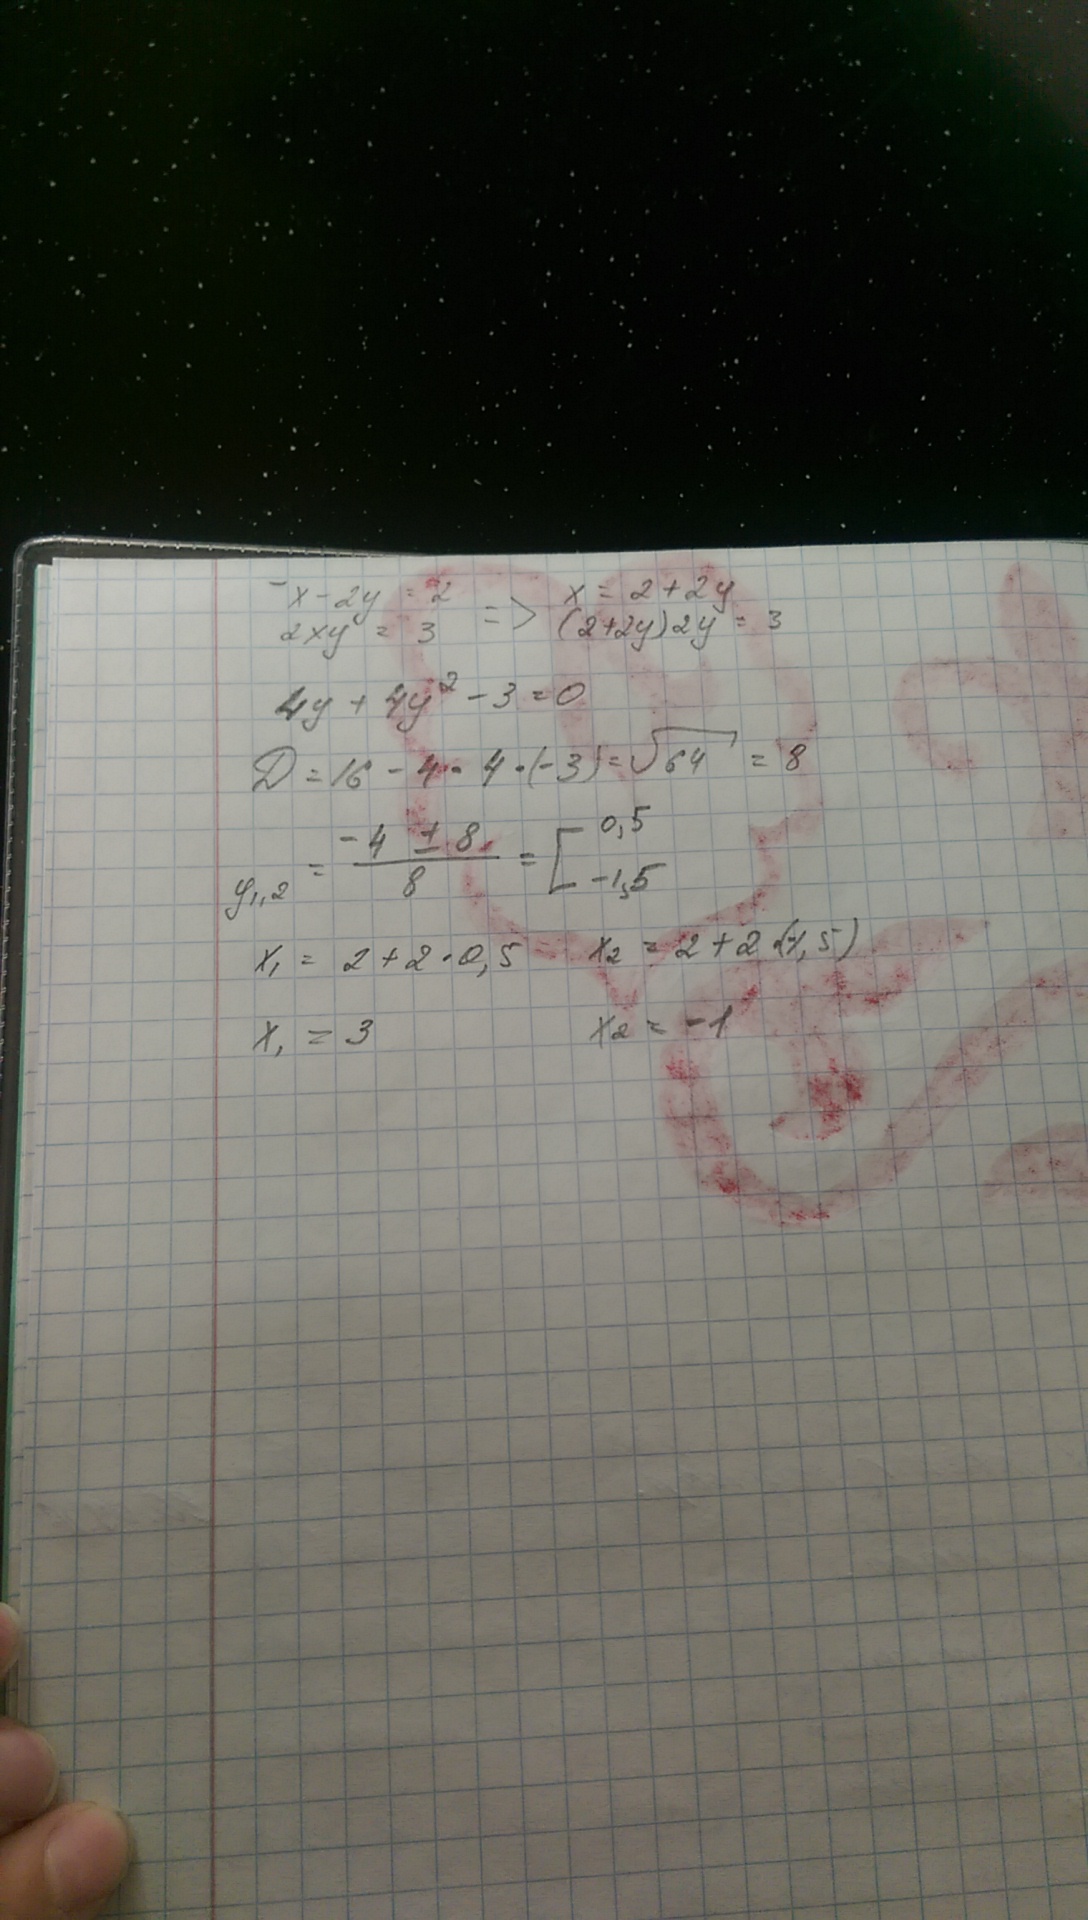 x - 2y = 2 => x = 2 + 2y
2xy = 3 (2+2y)2y = 3
4y + 4y² - 3 = 0
D = 16 - 4 · 4 · (-3) = √64 = 8
y₁,₂ = (-4 ± 8)/8 = [ 0,5
-1,5
x₁ = 2 + 2 · 0,5 x₂ = 2 + 2 (-1,5)
x₁ = 3 x₂ = -1